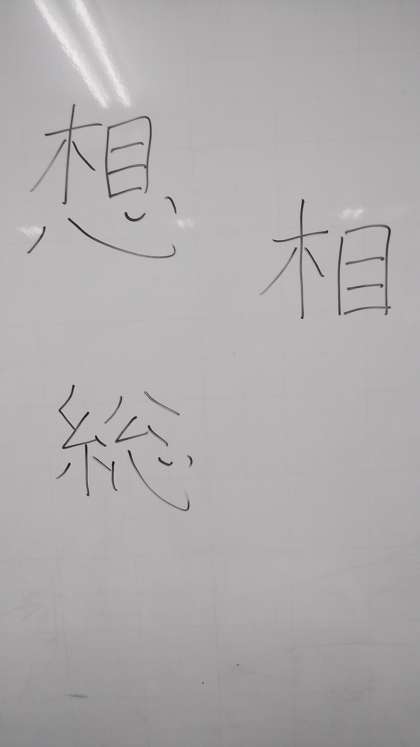 想
相
総